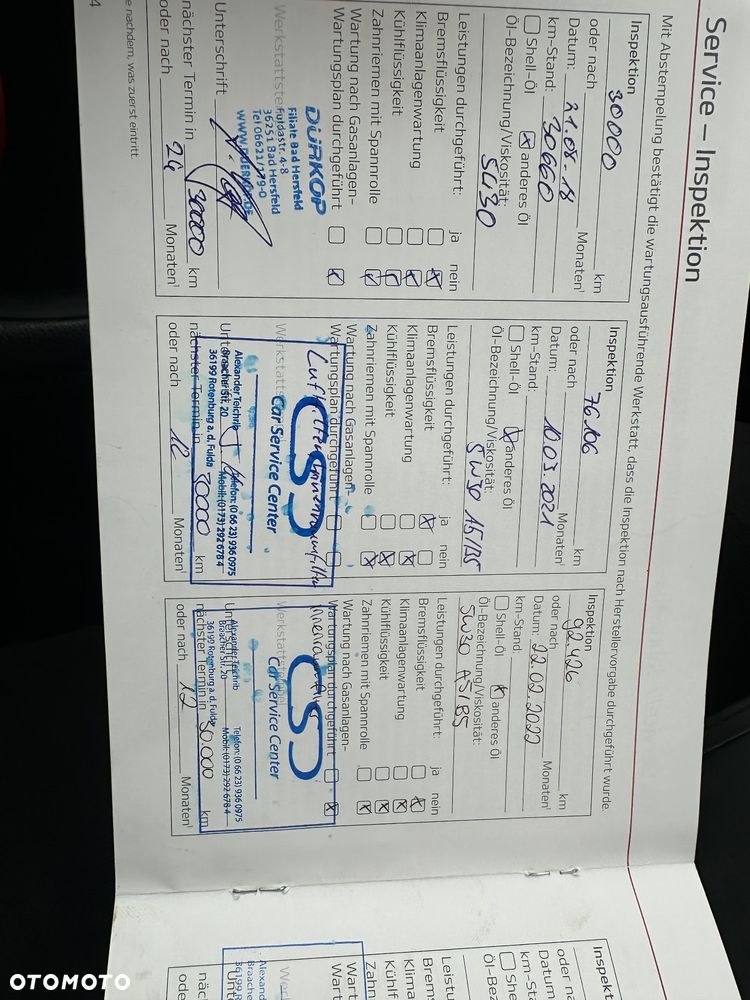 Service – Inspektion
Mit Abstempelung bestätigt die wartungsausführende Werkstatt, dass die Inspektion nach Herstellervorgabe durchgeführt wurde.
Inspektion 30000 km
oder nach Monaten¹
Datum: 21.08.18
km-Stand: 30660
Shell-Öl anderes Öl
Öl-Bezeichnung/Viskosität:
5W30
Leistungen durchgeführt: ja nein
Bremsflüssigkeit
Klimaanlagenwartung
Kühlflüssigkeit
Zahnriemen mit Spannrolle
Wartung nach Gasanlagen-
Wartungsplan durchgeführt
DÜRKOP
Filiale Bad Hersfeld
Fuldastr. 4-8
36251 Bad Hersfeld
Tel 06621/179-0
WWW.DUERKOP.DE
Unterschrift
nächster Termin in 30000 km
oder nach 24 Monaten¹
Inspektion 76.106 km
oder nach Monaten¹
Datum: 10.03.2021
km-Stand:
Shell-Öl anderes Öl
Öl-Bezeichnung/Viskosität:
5W30 A5/B5
Leistungen durchgeführt: ja nein
Bremsflüssigkeit
Klimaanlagenwartung
Kühlflüssigkeit
Zahnriemen mit Spannrolle
Wartung nach Gasanlagen-
Wartungsplan durchgeführt
Car Service Center
Alexander Teichrib
Braacher Str. 20
36199 Rotenburg a. d. Fulda
Telefon: (0 66 23) 936 0975
Mobil: (0173) 292 678 4
nächster Termin in km
oder nach 12 Monaten¹
Inspektion 92.426 km
oder nach Monaten¹
Datum: 22.02.2022
km-Stand:
Shell-Öl anderes Öl
Öl-Bezeichnung/Viskosität:
5W30 A5/B5
Leistungen durchgeführt: ja nein
Bremsflüssigkeit
Klimaanlagenwartung
Kühlflüssigkeit
Zahnriemen mit Spannrolle
Wartung nach Gasanlagen-
Wartungsplan durchgeführt
Car Service Center
Alexander Teichrib
Braacher Str. 20
36199 Rotenburg a. d. Fulda
Telefon: (0 66 23) 936 0975
Mobil: (0173) 292 678 4
nächster Termin in km
oder nach 12 Monaten¹
e nachdem, was zuerst eintritt.
4
Inspektion
oder n
Datum
km-Stan
She
Öl-Bez
Leistu
Brem
Klima
Kühlf
Zahn
Wart
Wart
Alexand
Braach
36199 R
näch
ode
OTOMOTO